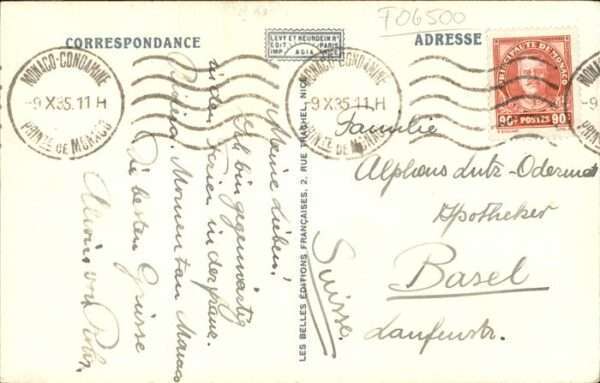 CORRESPONDANCE
LEVY ET NEURDEIN Rs
EDIT. PARIS
IMP. ASIA
ADRESSE
T06500
MONACO-CONDAMINE
-9 X 35.11 H
PRINTÉ DE MONACO
MONACO-CONDAMINE
-9 X 35.11 H
PRINTÉ DE MONACO
PRINCIPAUTE DE MONACO
90c POSTES 90c
LES BELLES ÉDITIONS FRANÇAISES, 2, RUE NICE
Meine Lieben!
Ich bin gegenwärtig
in den Ferien in der
Riviera. Momentan Monaco
Die besten Grüsse
Familie
Alphons Lutz-Odermatt
Apotheker
Basel
Laufenstr.
Suisse